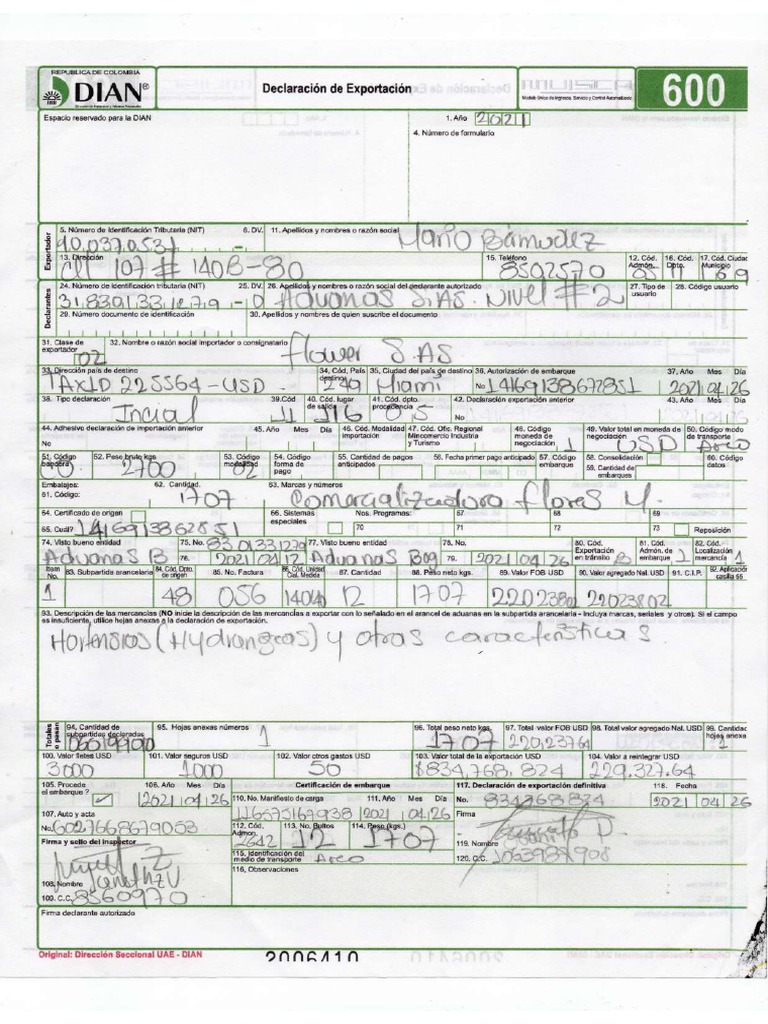 REPUBLICA DE COLOMBIA
DIAN®
Declaración de Exportación
MUISCA
Modelo Único de Ingresos, Servicio y Control Automatizado
600
Espacio reservado para la DIAN
1. Año 2021
4. Número de formulario
Exportador
5. Número de Identificación Tributaria (NIT) 6. DV. 11. Apellidos y nombres o razón social
90.037.0531 - Mario Bermudez
13. Dirección 15. Teléfono 12. Cód. Admón. 16. Cód. Dpto. 17. Cód. Ciudad Municipio
Cll 107 # 140B-80 8502570 05 11 169
Declarantes
24. Número de Identificación Tributaria (NIT) 25. DV. 26. Apellidos y nombres o razón social del declarante autorizado 27. Tipo de usuario 28. Código usuario
31.830.133.1279 - 0 Aduanas S.AS. Nivel # 2
29. Número documento de identificación 30. Apellidos y nombres de quien suscribe el documento
31. Clase de exportador 32. Nombre o razón social importador o consignatario
02 flower S.AS
33. Dirección país de destino 34. Cód. País destino 35. Ciudad del país de destino 36. Autorización de embarque 37. Año Mes Día
TAXID 225564-USD. 249 Miami No 14169138672851 2021 04 26
38. Tipo declaración 39. Cód 40. Cód. lugar de salida 41. Cód. dpto. procedencia 42. Declaración exportación anterior 43. Año Mes Día
Incial 11 116 05 No
44. Adhesivo declaración de importación anterior 45. Año Mes Día 46. Cód. Modalidad importación 47. Cód. Ofic. Regional Mincomercio Industria y Turismo 48. Código moneda de negociación 49. Valor total en moneda de negociación 50. Código modo de transporte
No 1 USD Areo
51. Código bandera 52. Peso bruto kgs. 53. Código modalidad 54. Código forma de pago 55. Cantidad de pagos anticipados 56. Fecha primer pago anticipado 57. Código embarque 58. Consolidación 59. Cantidad de embarques 60. Código datos
CO 2700 02
Embalajes: 61. Código: 62. Cantidad. 63. Marcas y números
1707 Comercializadora flores M.
64. Certificado de origen 66. Sistemas especiales Nos. Programas: 67 68 69
65. Cuál? 141691386 2851 70 71 72 73 Reposición
74. Visto bueno entidad 75. No. 830133 1279 77. Visto bueno entidad 78. No. 80. Cód. Exportación en tránsito 81. Cód. Admón. de 82. Cód. Localización mercancía
Aduanas B 76. 2021 04 12 Aduanas Bog 79. 2021 04 26 B 1 1
Item No. 83. Subpartida arancelaria 84. Cód. Dpto. de origen 85. No. Factura 86. Cód. Unidad Cial. Medida 87. Cantidad 88. Peso neto kgs. 89. Valor FOB USD 90. Valor agregado Nal. USD 91. C.I.P. 92. Aplicación casilla 56
1 48 056 14040 12 1707 22023802 22023802
93. Descripción de las mercancías (NO inicie la descripción de las mercancías a exportar con lo señalado en el arancel de aduanas en la subpartida arancelaria - incluya marcas, seriales y otros). Si el campo
es insuficiente, utilice hojas anexas a la declaración de exportación.
Hortensias (Hydrangeas) y otras características.
Totales
94. Cantidad de subpartidas declaradas 95. Hojas anexas números 96. Total peso neto kgs. 97. Total valor FOB USD 98. Total valor agregado Nal. USD 99. Cantidad hojas anexa
1 1707 220,23764 1
100. Valor fletes USD 101. Valor seguros USD 102. Valor otros gastos USD 103. Valor total de la exportación USD 104. Valor a reintegrar USD
3000 1000 50 $834,768.824 229.327.64
105. Procede el embarque? 106. Año Mes Día Certificación de embarque 117. Declaración de exportación definitiva 118. Fecha
✓ 2021 04 26 No. 834768824 2021 04 26
110. No. Manifiesto de carga 111. Año Mes Día
116575169938 2021 04 26
107. Auto y acta
No. 6027668679053
112. Cód. Admon. 113. No. Bultos 114. Peso (kgs.)
2642 12 1707
Firma
Firma y sello del inspector
115. Identificación del medio de transporte Areo
119. Nombre
120. C.C. 1063987908
116. Observaciones
108. Nombre
109. C.C. 8560970
Firma declarante autorizado
Original: Dirección Seccional UAE - DIAN
2006410